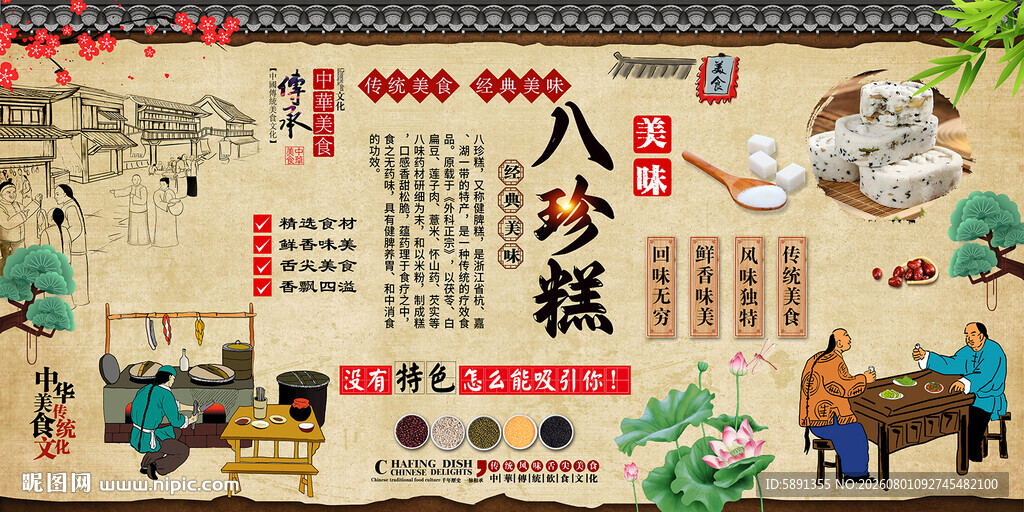 中國傳統美食文化
傳承
中華
美食
中華美食
Chinese
文化
传统美食 经典美味
八珍糕
经典美味
八珍糕，又称健脾糕，是浙江省杭、嘉
、湖一带的特产，是一种传统的疗效食
品。原载于《外科正宗》，以茯苓、白
扁豆、莲子肉、薏米、怀山药、芡实等
八味药材研细为末，和以米粉，制成糕
，口感香甜松脆，蕴药理于食疗之中，
食之无药味，具有健脾养胃、和中消食
的功效。
精选食材
鲜香味美
舌尖美食
香飘四溢
美食
美味
传统美食
风味独特
鲜香味美
回味无穷
没有特色怎么能吸引你！
中华
美食
传统
文化
CHAFING DISH
CHINESE DELIGHTS
Chinese traditional food culture 千年歷史 一脉相承
传统风味舌尖美食
中華傳統飲食文化
昵图网 www.nipic.com
ID:5891355 NO:20260801092745482100